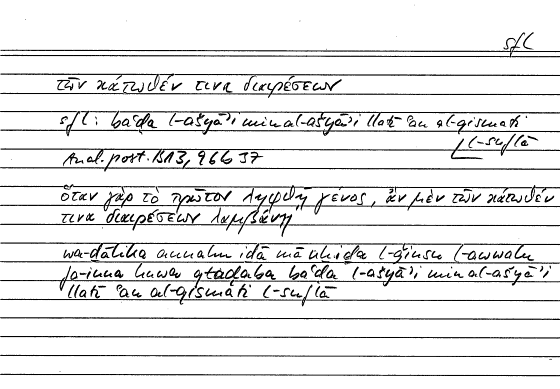 sfl
τῶν κάτωθέν τινα διαιρέσεων
sfl: baʿḍa l-ašyāʾi min al-ašyāʾi llatī ʿan al-qismati
l-suflā
Anal. post. B13, 96b37
ὅταν γὰρ τὸ πρῶτον ληφθῇ γένος, ἂν μὲν τῶν κάτωθέν
τινα διαιρέσεων λαμβάνῃ,
wa-ḏālika annahu iḏā mā uḫiḏa l-ǧinsu l-awwalu
fa-inna huwa qtaḍaba baʿḍa l-ašyāʾi min al-ašyāʾi
llatī ʿan al-qismati l-suflā